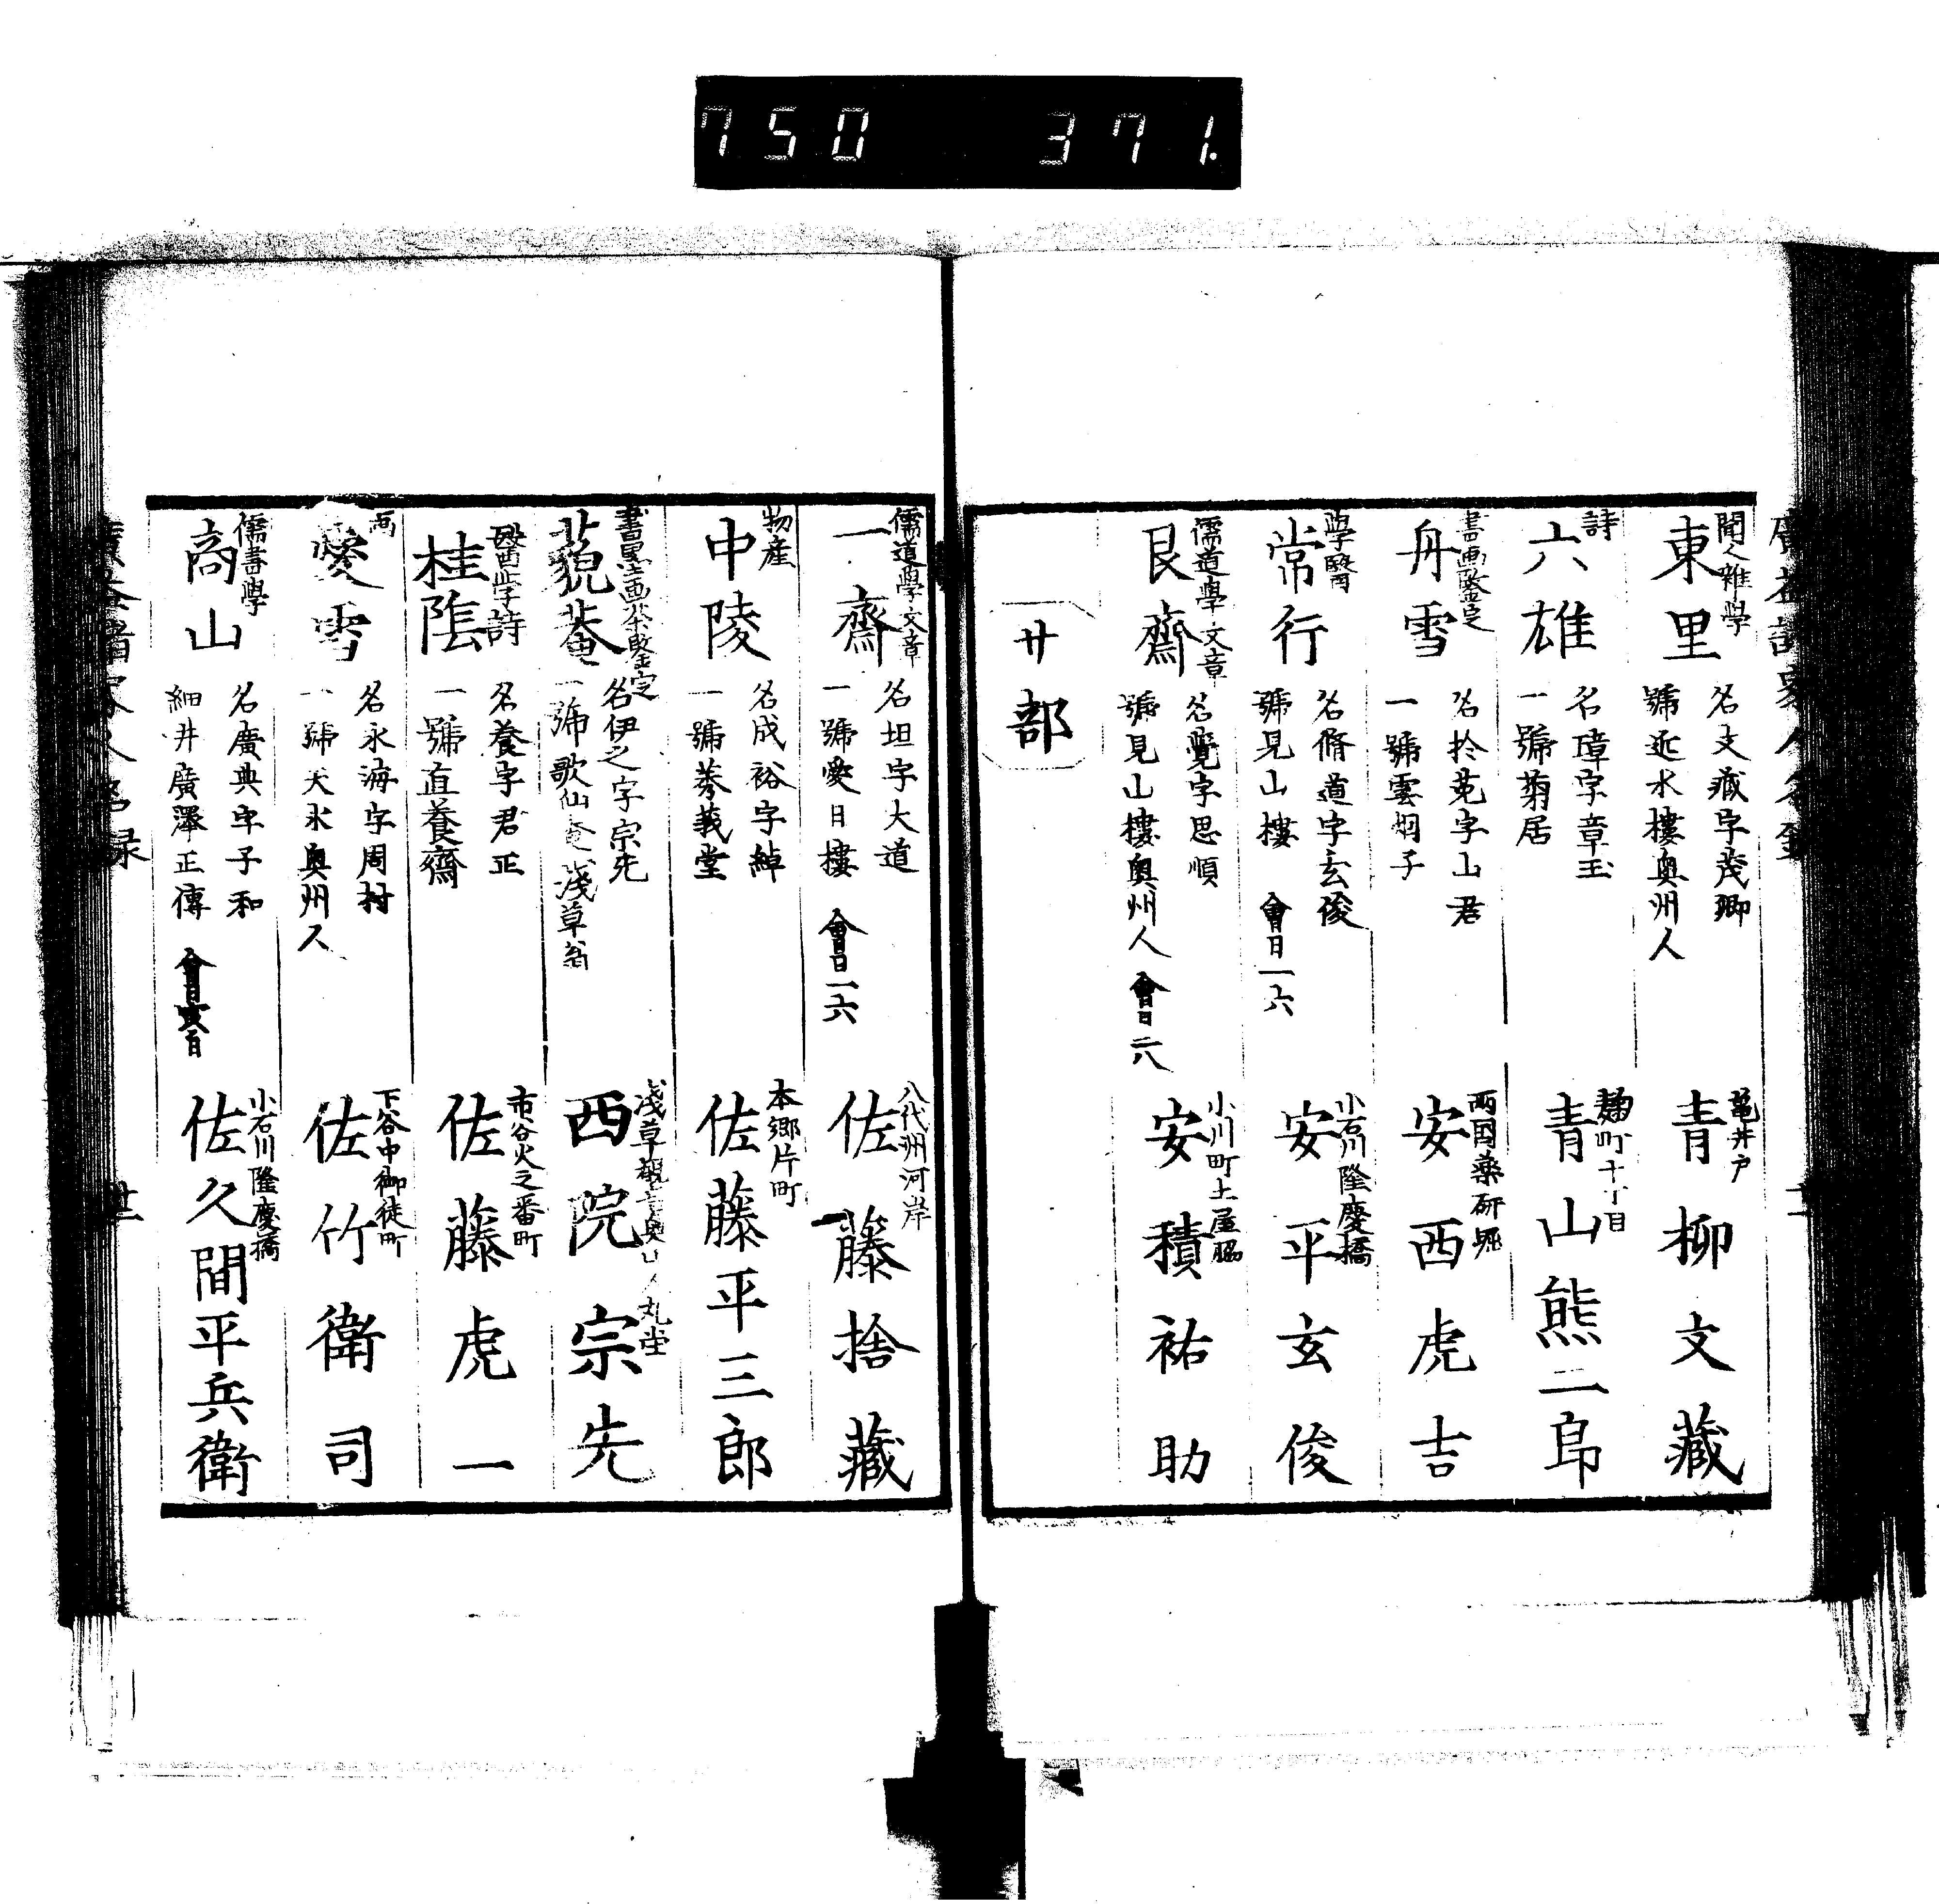 750 371.
聞人雜學
東里
名文藏字茂卿
號近水樓奥州人
亀井戸
青柳文藏
詩
六雄
名璋字章玉
一號菊居
麹町十丁目
青山熊二郎
書画鑒定
舟雪
名於菟字山君
一號雲烟子
両国薬研堀
安西虎吉
學醫
常行
名脩道字玄俊
號見山樓 會日一六
小石川隆慶橋
安平玄俊
儒道學文章
艮齋
名覺字思順
號見山樓奥州人 會日二八
小川町土屋脇
安積祐助
サ部
儒道學文章
一齋
名坦字大道
一號愛日樓 會日一六
八代洲河岸
佐藤捨藏
物産
中陵
名成裕字綽
一號菶莪堂
本郷片町
佐藤平三郎
書墨画茶鑒定
藐菴
名伊之字宗先
一號歌仙菴 淺草翁
淺草 奥山人丸堂
西院宗先
醫学詩
桂陰
名養字君正
一號直養齋
市谷火之番町
佐藤虎一
画
愛雪
名永海字周村
一號天水奥州人
下谷中御徒町
佐竹衛司
儒書學
商山
名廣典字子和
細井廣澤正傳 會日
小石川隆慶橋
佐久間平兵衛
廣益諸家人名録
廿